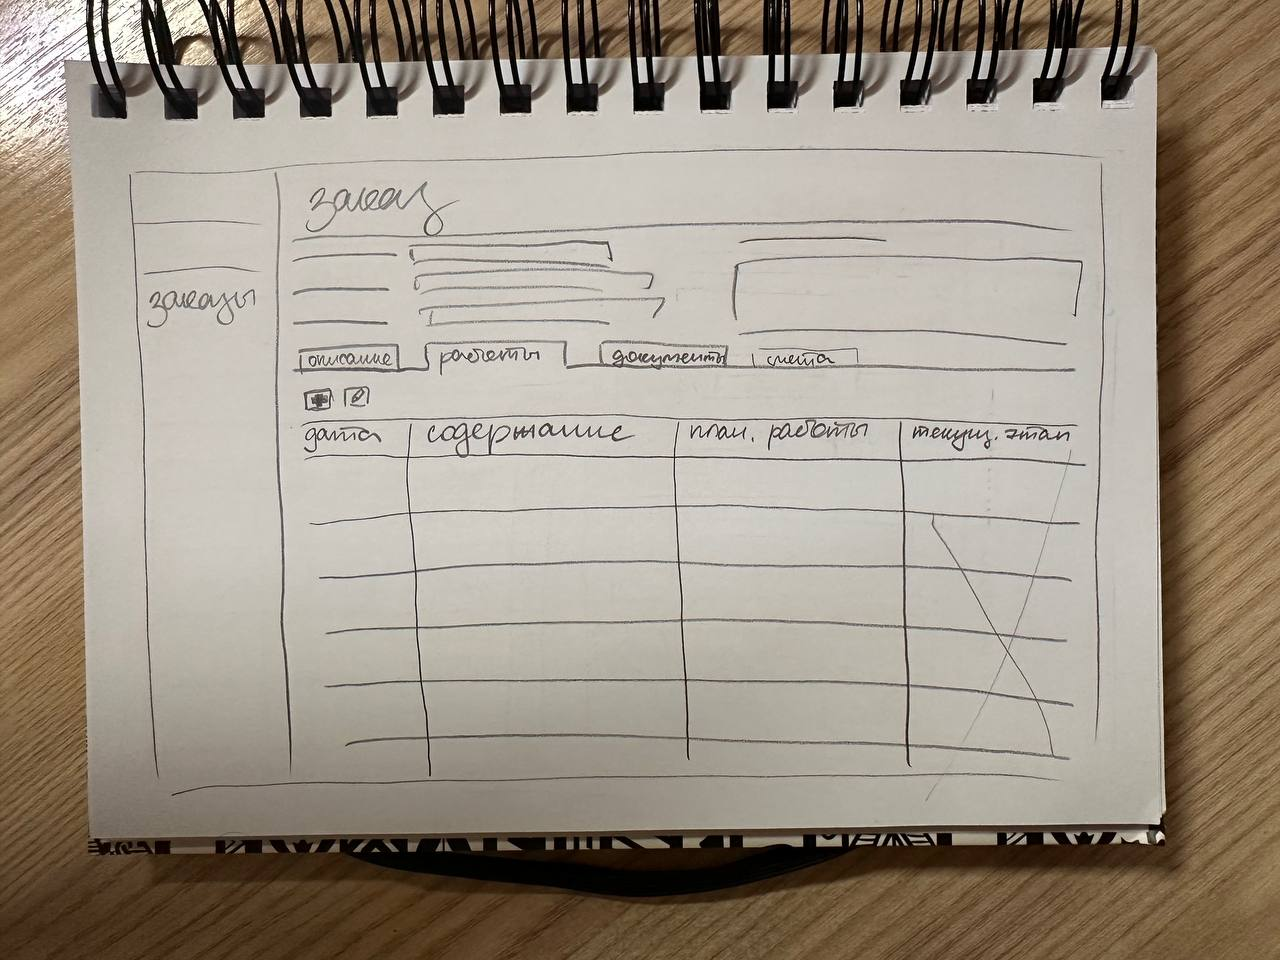 заказ
заказы
описание работы документы смета
дата содержание план. работы текущ. этап